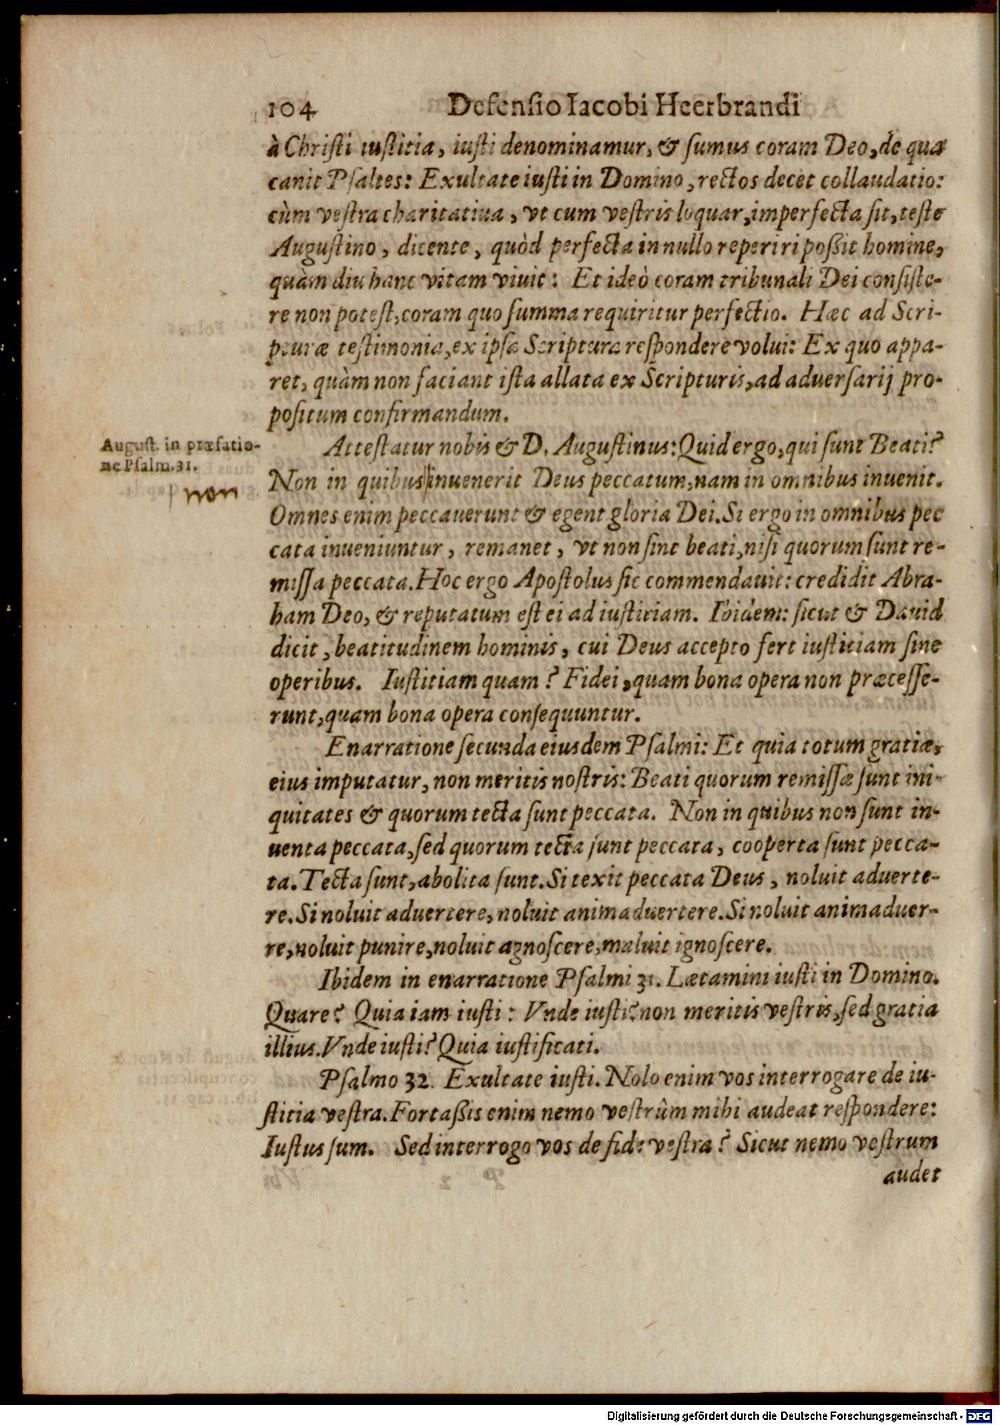 104 Defensio Iacobi Heerbrandi
à Christi iustitia, iusti denominamur, & sumus coram Deo, de qua
canit Psaltes: Exultate iusti in Domino, rectos decet collaudatio:
cùm vestra charitatiua, vt cum vestris loquar, imperfecta sit, teste
Augustino, dicente, quòd perfecta in nullo reperiri poßit homine,
quàm diu hanc vitam viuit: Et ideò coram tribunali Dei consiste-
re non potest, coram quo summa requiritur perfectio. Hæc ad Scri-
pturæ testimonia, ex ipsa Scriptura respondere volui: Ex quo appa-
ret, quàm non faciant ista allata ex Scripturis, ad aduersarij pro-
positum confirmandum.
August. in præfatio-
ne Psalm. 31.
non
Attestatur nobis & D. Augustinus: Quid ergo, qui sunt Beati?
Non in quibus inuenerit Deus peccatum, nam in omnibus inuenit.
Omnes enim peccauerunt & egent gloria Dei. Si ergo in omnibus pec
cata inueniuntur, remanet, vt non sint beati, nisi quorum sunt re-
missa peccata. Hoc ergo Apostolus sic commendauit: credidit Abra-
ham Deo, & reputatum est ei ad iustitiam. Ibidem: sicut & Dauid
dicit, beatitudinem hominis, cui Deus accepto fert iustitiam sine
operibus. Iustitiam quam? Fidei, quam bona opera non præcesse-
runt, quam bona opera consequuntur.
Enarratione secunda eiusdem Psalmi: Et quia totum gratiæ,
eius imputatur, non meritis nostris: Beati quorum remissæ sunt ini-
quitates & quorum tecta sunt peccata. Non in quibus non sunt in-
uenta peccata, sed quorum tecta sunt peccata, cooperta sunt pecca-
ta. Tecta sunt, abolita sunt. Si texit peccata Deus, noluit aduerte-
re. Si noluit aduertere, noluit animaduertere. Si noluit animaduer-
re, noluit punire, noluit agnoscere, maluit ignoscere.
Ibidem in enarratione Psalmi 31. Lætamini iusti in Domino.
Quare? Quia iam iusti: Vnde iusti? non meritis vestris, sed gratia
illius. Vnde iusti? Quia iustificati.
Psalmo 32. Exultate iusti. Nolo enim vos interrogare de iu-
stitia vestra. Fortaßis enim nemo vestrûm mihi audeat respondere:
Iustus sum. Sed interrogo vos de fide vestra? Sicut nemo vestrum
audet
Digitalisierung gefördert durch die Deutsche Forschungsgemeinschaft - DFG